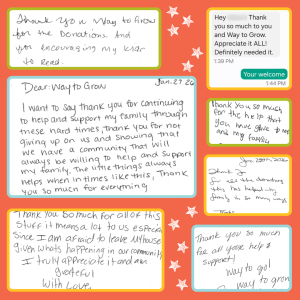 Thank you Way to Grow
for the donations. And
for encouraging my kids
to read.
Hey
Thank
you so much to you
and Way to Grow.
Appreciate it ALL!
Definitely needed it.
1:39 PM
Your welcome
1:44 PM
Jan. 27 26
Dear Way to Grow
I want to say thank you for continuing
to help and support my family through
these hard times, Thank you for not
giving up on us and showing that
we have a community that will
always be willing to help and support
my family. The little things always
helps when in times like this, Thank
you so much for everything
Thank you so much
for the help that
you have give to me
and my family
for the donations
this has helped my
family in so many ways
Thank you so much for all of this
stuff it means a lot to us especially
Since I am afraid to leave my house
given whats happening in our community
I truly appreciate it and am
grateful
With Love,
Thank you so much
for all your help &
support!
Way to go!
way to grow